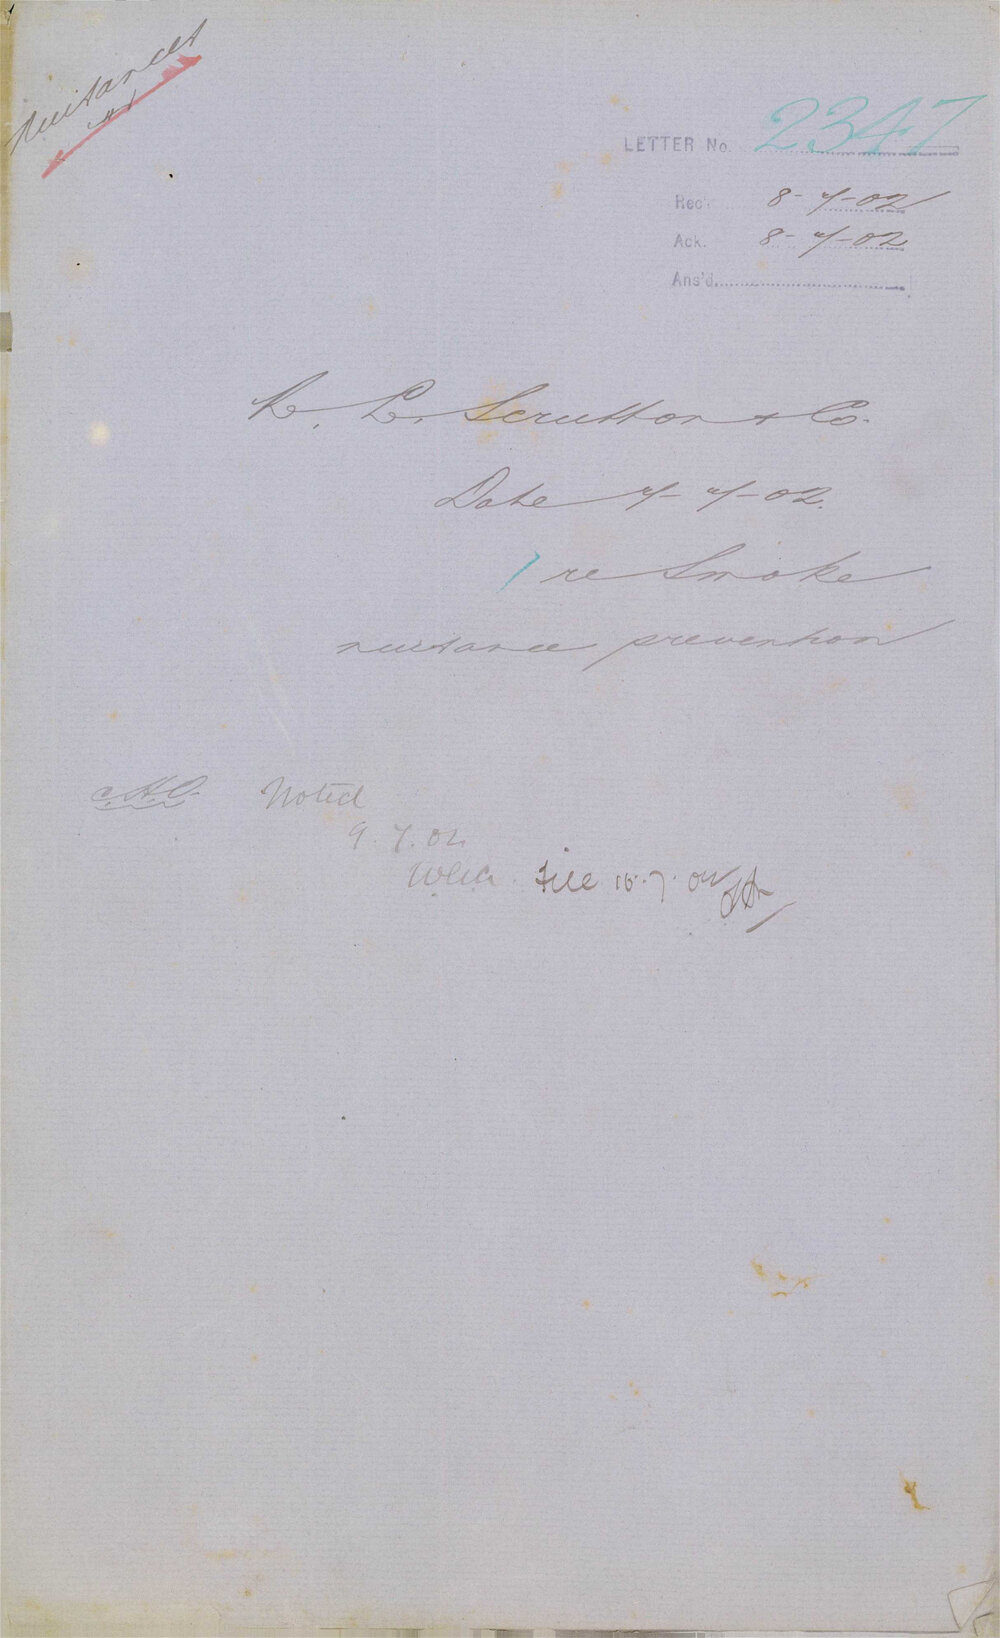 Nuisances
LETTER No. 2347
Rec'. 8-7-02
Ack. 8-7-02
Ans'd.
L. Scrutton & Co.
Date 7-7-02.
re Smoke
nuisance prevention
C.H.O. Noted
9.7.02
File 10.7.02